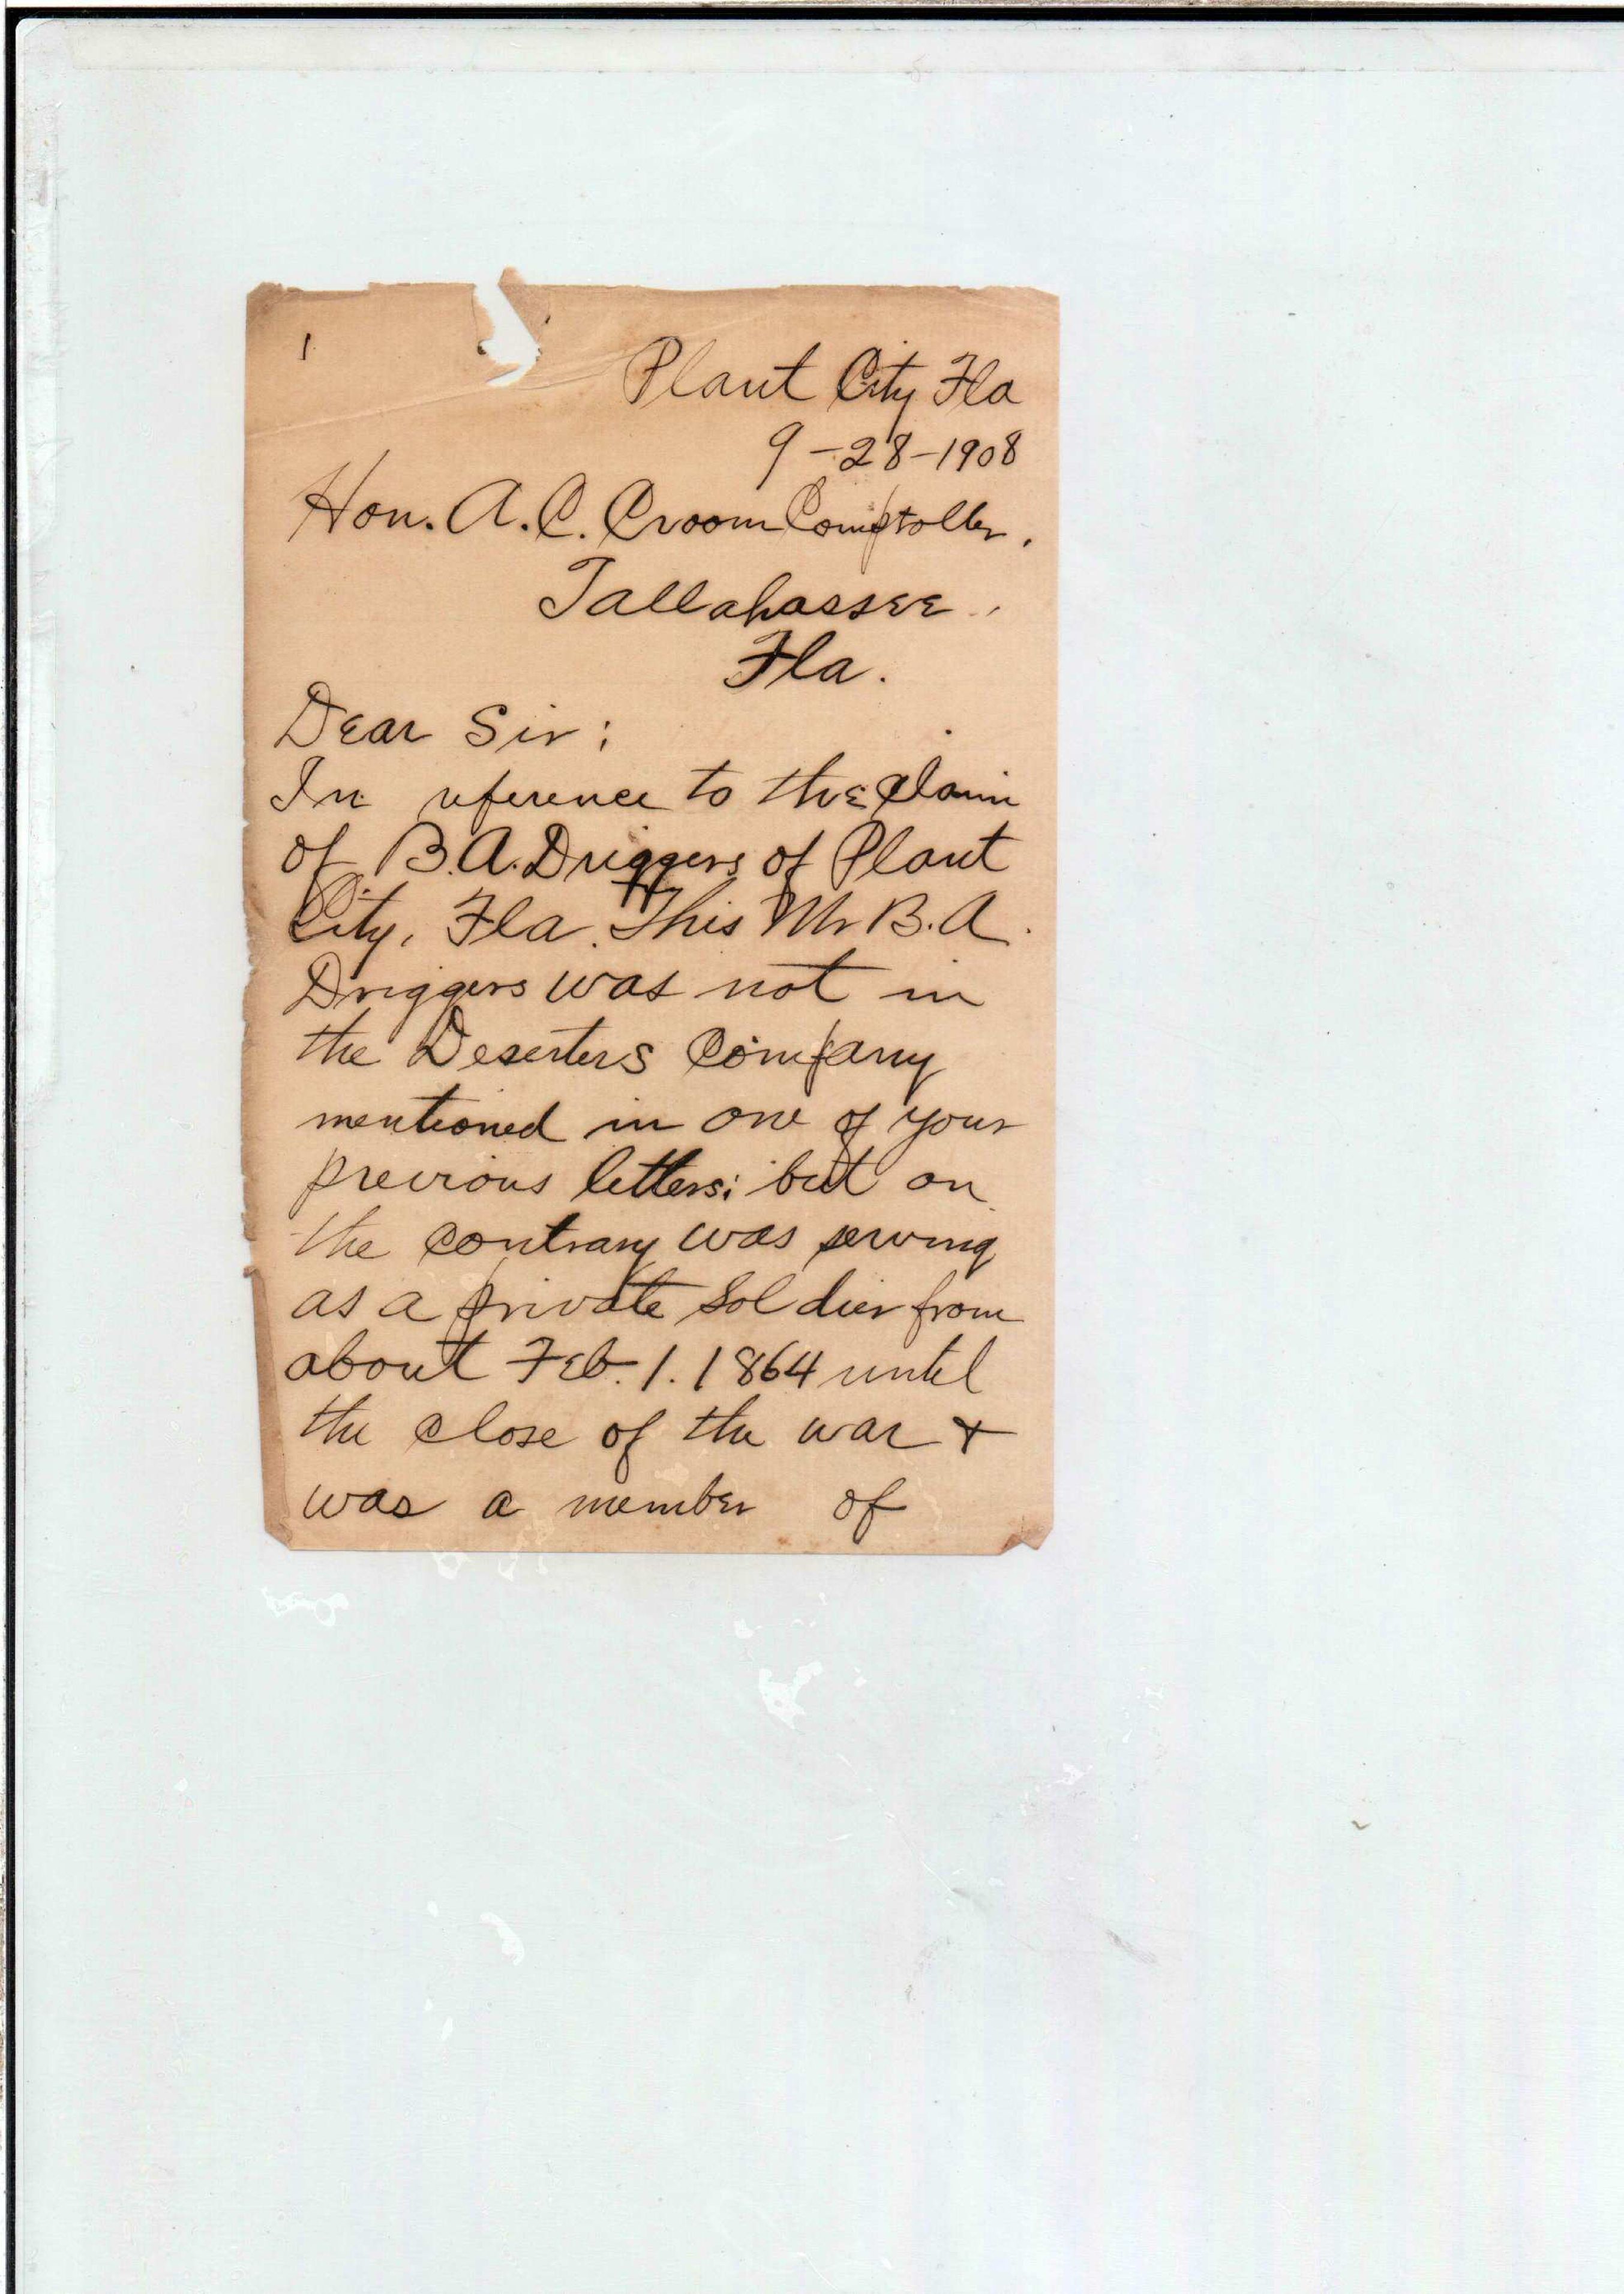 1
Plant City Fla
9-28-1908
Hon. A. C. Croom Comptoller,
Tallahassee,
Fla.
Dear Sir:
In reference to the claim
of B. A. Driggers of Plant
City, Fla. This Mr B. A.
Driggers was not in
the Deserters Company
mentioned in one of your
previous letters; but on
the contrary was serving
as a private soldier from
about Feb. 1. 1864 until
the close of the war &
was a member of